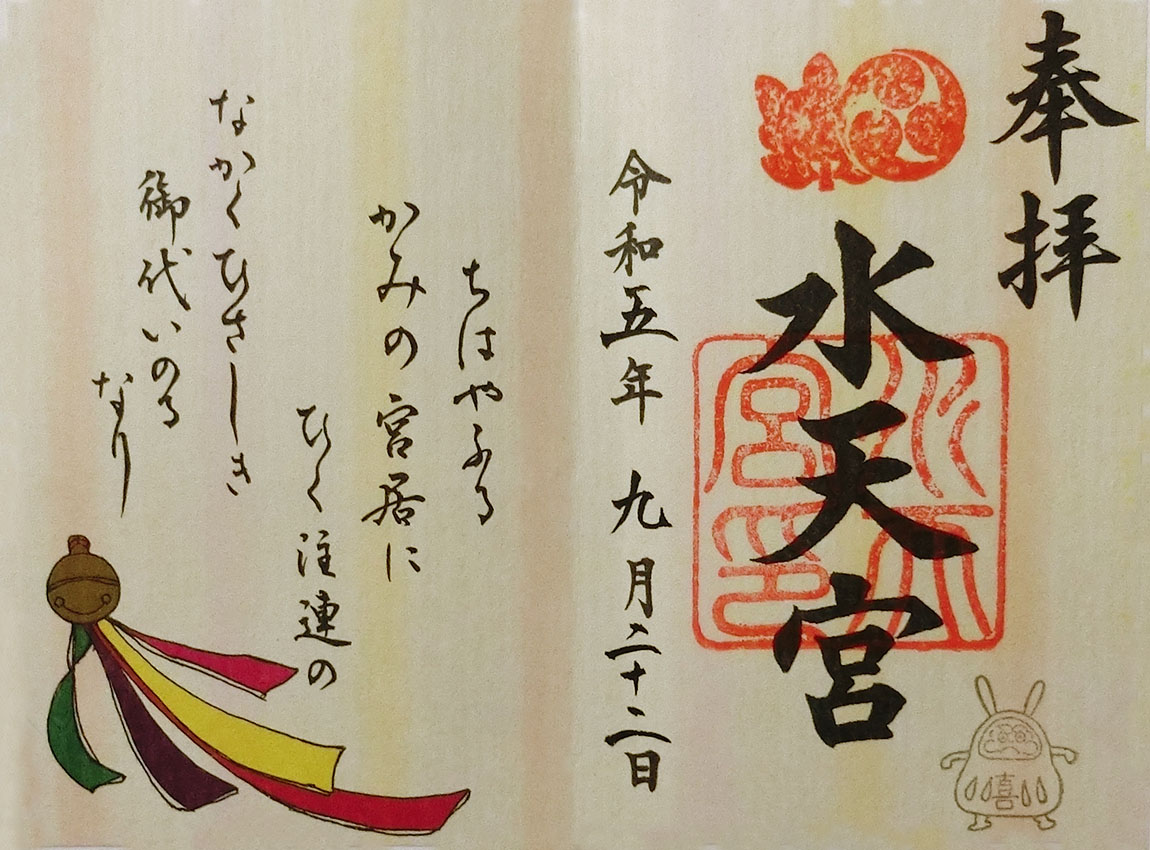 奉拝
水天宮
水天宮印
令和五年 九月二十二日
喜
ちはやふる
かみの宮居に
ひく注連の
なかくひさしき
御代いのる
なり